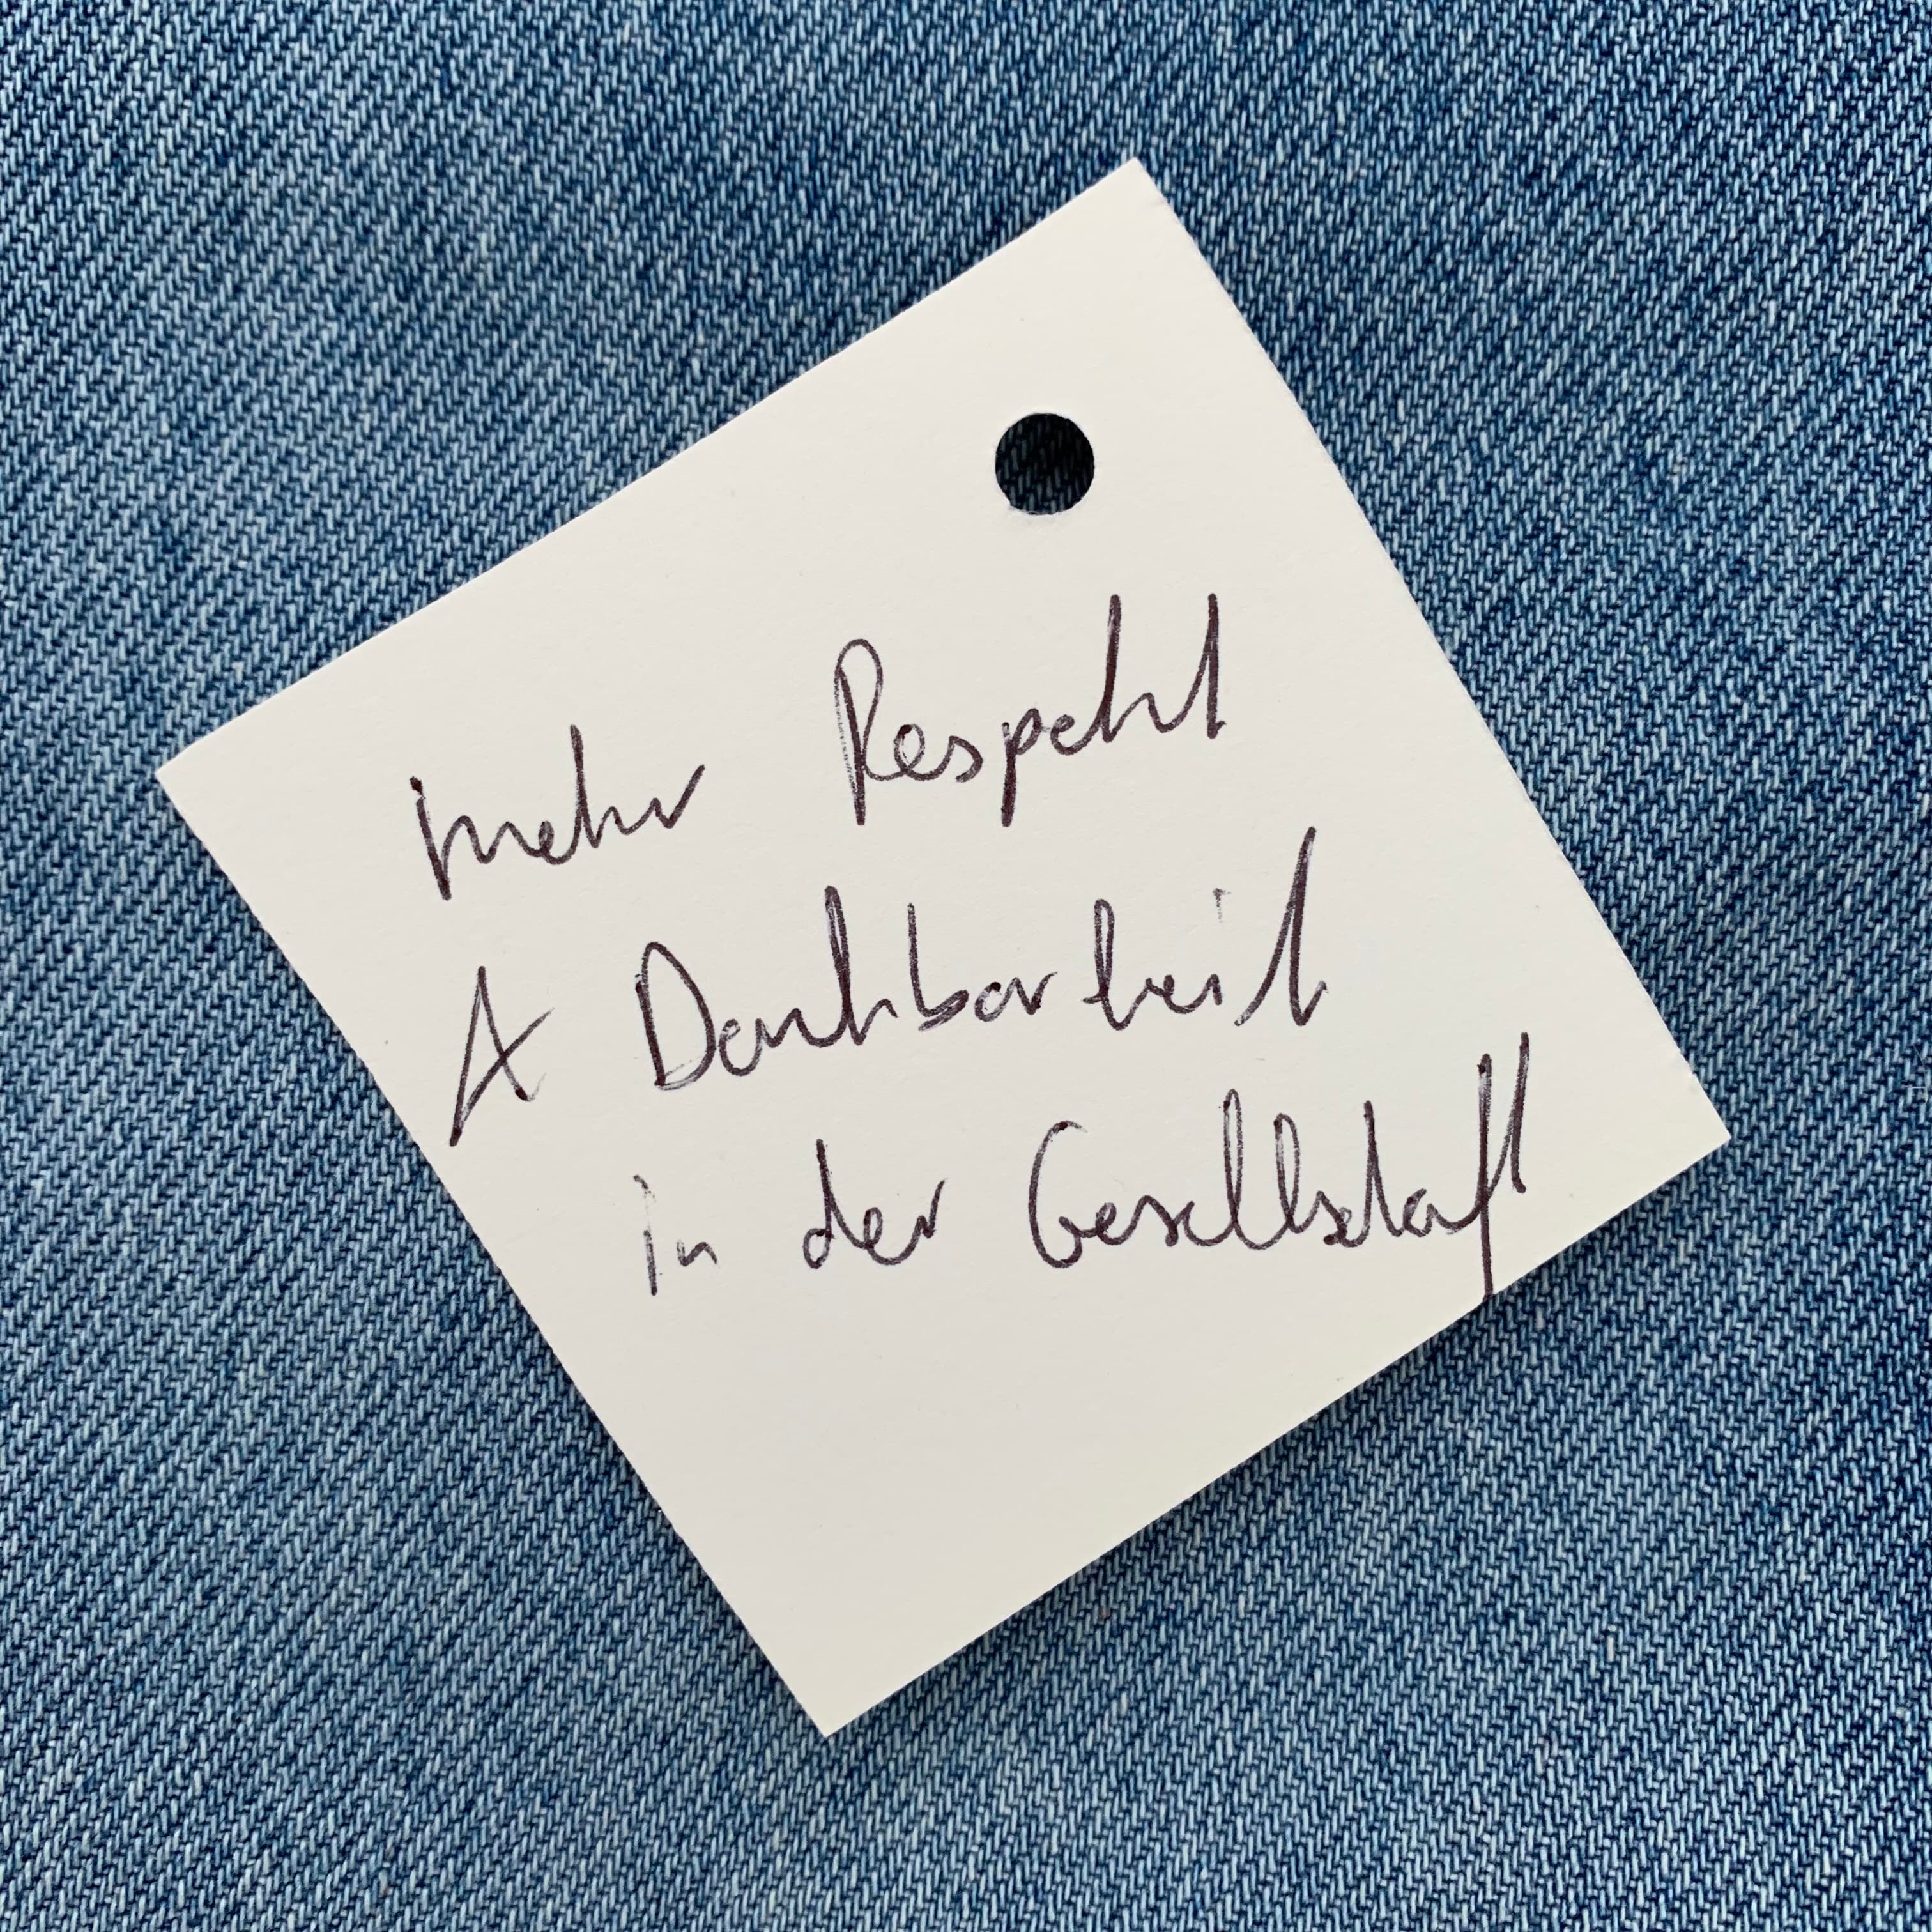 mehr Respekt
& Dankbarkeit
in der Gesellschaft